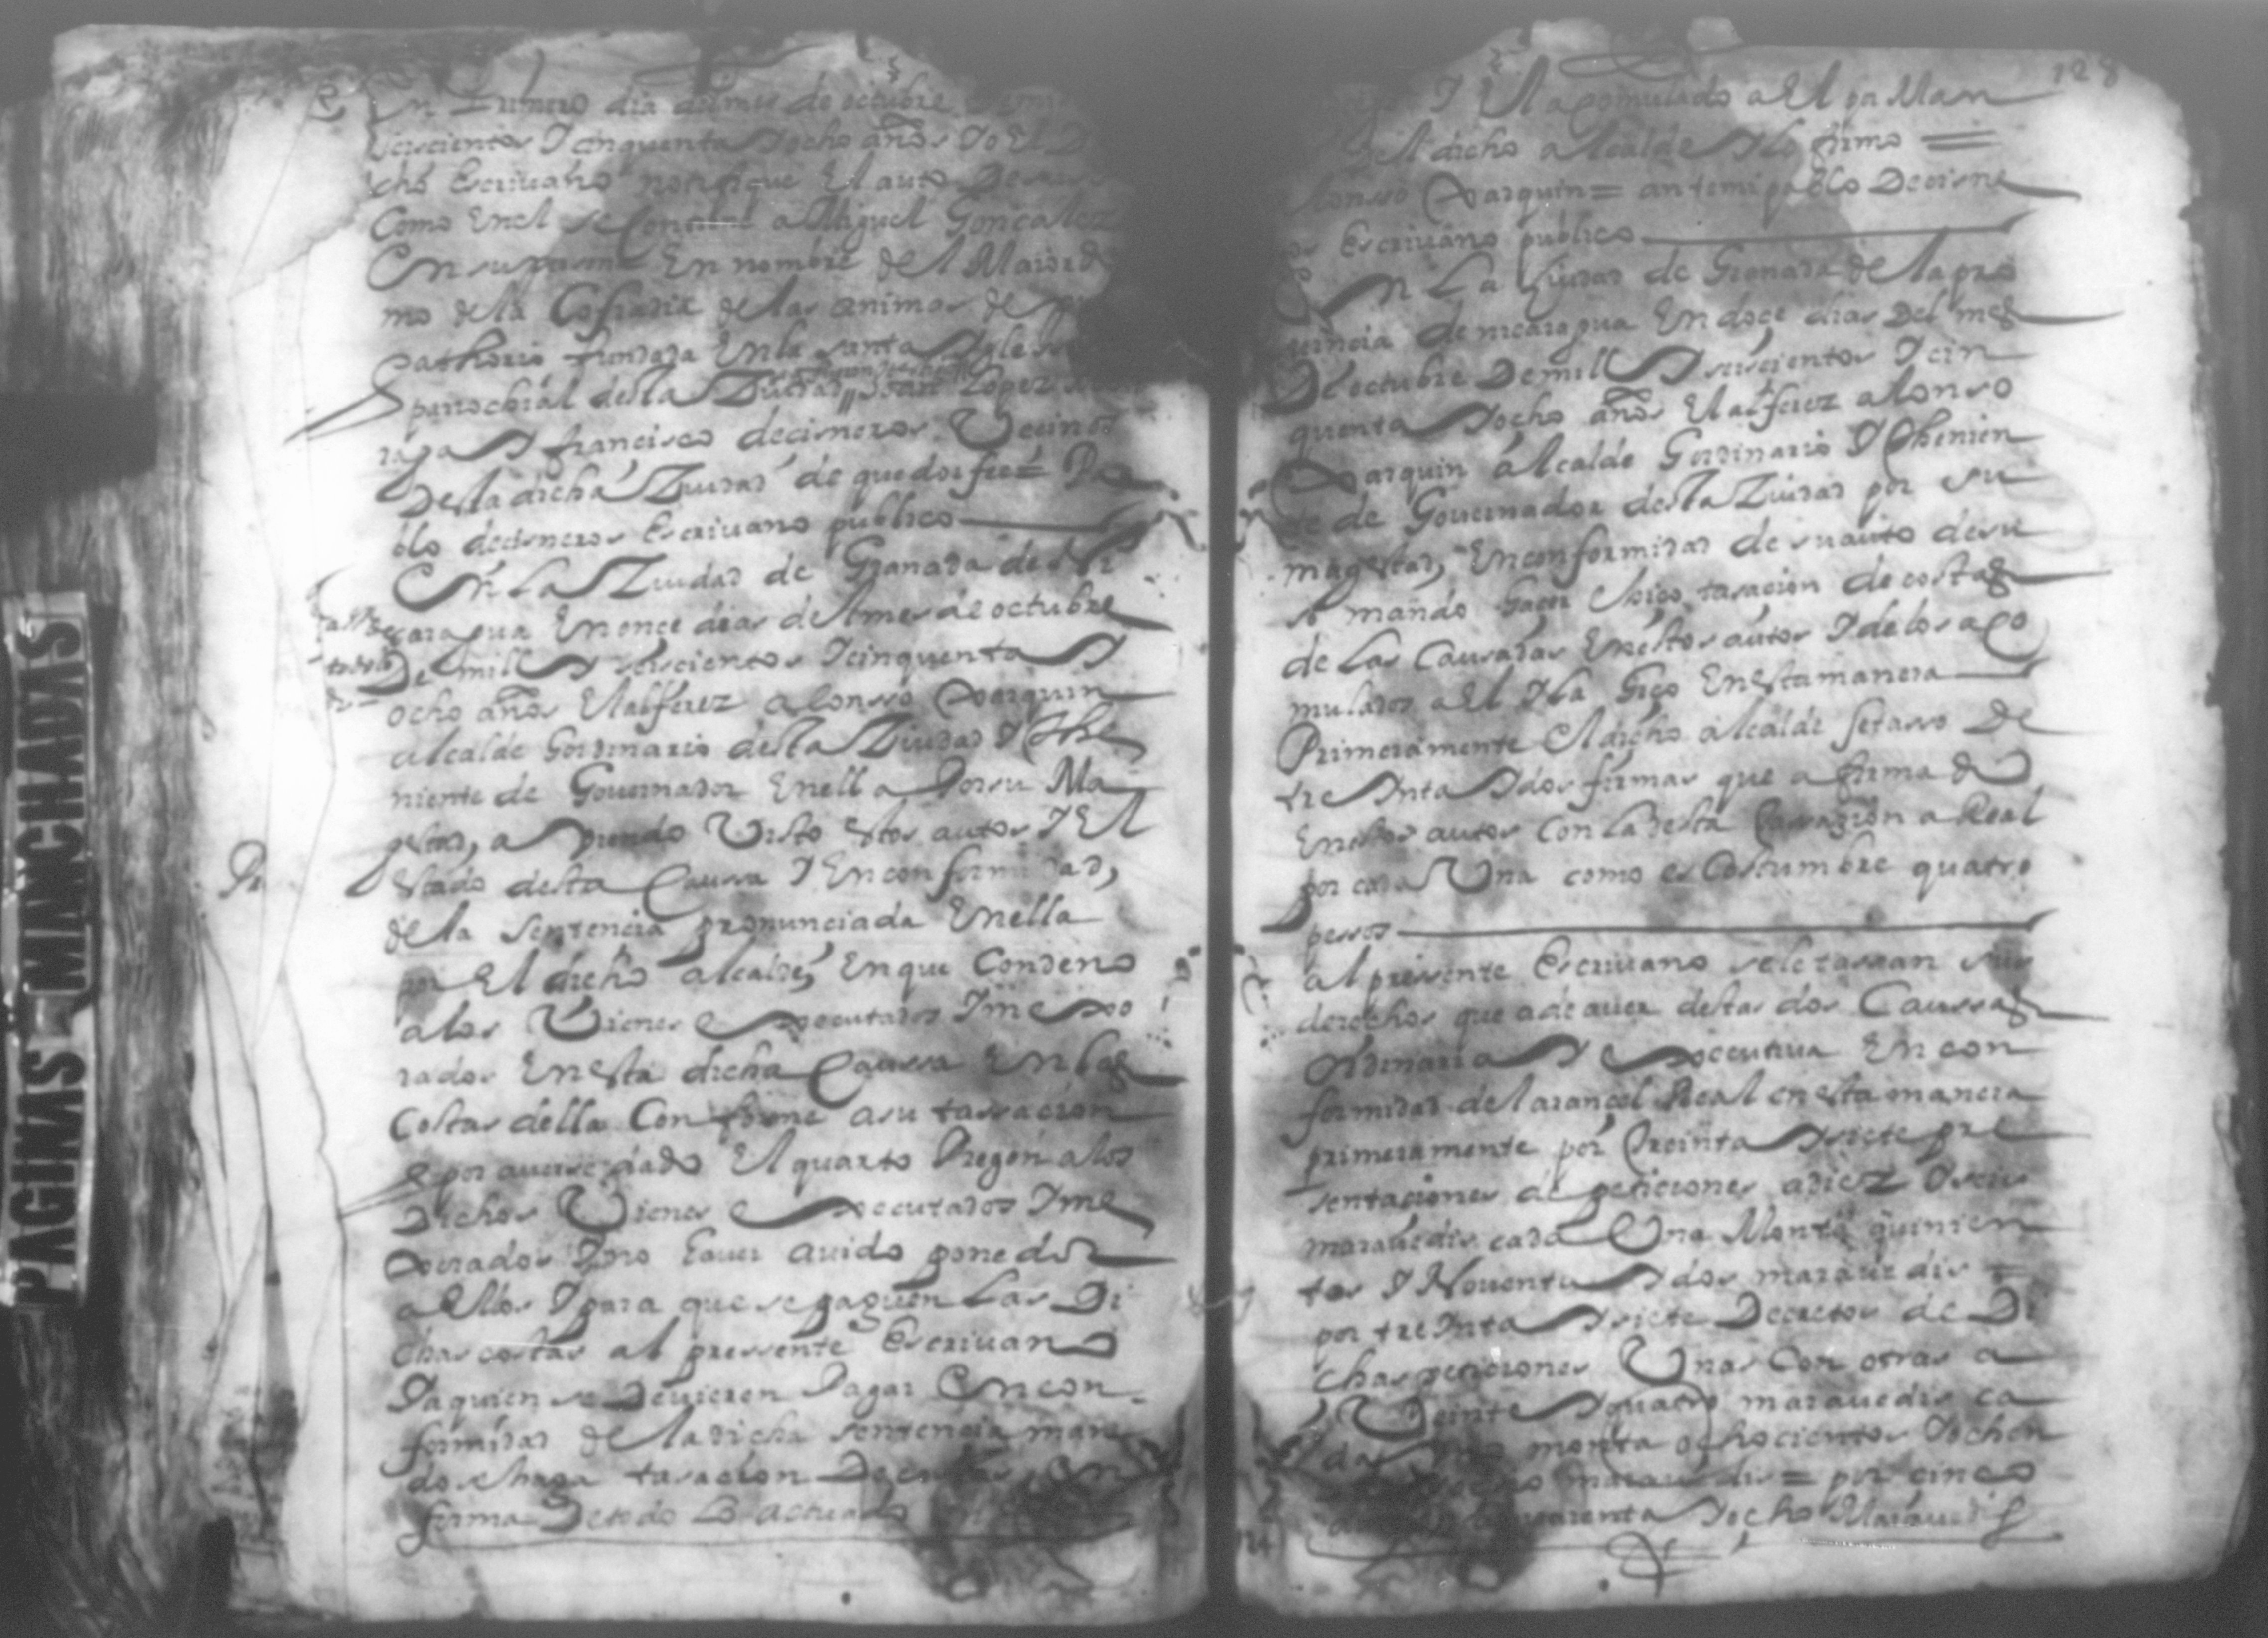 En Primero dia del mes de octubre
seiscientos I cinquenta I ocho años Io El D
cho Escriuano notifique El auto De
Como Enel se Contiene a Miguel Gonçalez
En su persona En nombre del Maiordo
mo de la Cofradia de las animas de pu
gathorio fundada En la santa Iglessia
parrochial desta Ziudad Lopez
raga I francisco decisneros Vecinos
Desta dicha Ziudad de que doi fee = Pa
blo decisneros Escriuano publico
En La Ziudad de Granada de Ni
caragua En onçe dias del mes de octubre
De mill I seiscientos I cinquenta I
ocho años El alferez alonsso Xarquin
alcalde hordinario desta Ziudad I The
niente de Gouernador Enella Por su Ma
gestad, auiendo Visto estos autos I El
estado desta Caussa I En conformidad,
de la sentencia pronunciada Enella
por El dicho alcalde, En que Condeno
a los Vienes Executados I mexo
rados En esta dicha Caussa En las
Costas della Conforme a su tassacion
e por auerse dado El quarto Pregon a los
Dichos Vienes Executados I me
xorados I no hauer auido ponedor
a ellos I para que se paguen Las Di
chas costas al pressente Escriuano
I a quien se Deuieren Pagar En con
formidad de la dicha sentencia man
do se haga tasacion De costas En
forma De todo Lo actuado
128
I El acomulado a El pa Man
El dicho alcalde I Lo firmo =
alonsso Xarquin = ante mi pablo Decisne
ros Escriuano publico
En La Ziudad de Granada de la pro
uincia de nicaragua En doçe dias Del mes
De octubre De mill I seiscientos I cin
quenta I ocho años El alferez alonso
Xarquin alcalde hordinario I Thenien
te de Gouernador desta Ziudad por su
magestad, En conformidad de su auto de su
so mando haçer I hiço tasacion de costas
de Las Causadas En estos autos I de los aco
mulados a El I La hiço En esta manera
Primeramente El dicho alcalde se tasso De
treinta I dos firmas que a firmado
En estos autos Con la desta tassazion a Real
por cada Una como es Costumbre quatro
pessos
al pressente Escriuano se le tassan sus
derechos que a de auer destas dos Caussas
ordinaria I Executiua En con
formidad del arancel Real en esta manera
primeramente por treinta I siete pre
sentaciones de peticiones a diez I seis
marauedis cada Una Monta quinien
tos I Nouenta I dos marauedis =
por treinta I siete Decretos de Di
chas peticiones Unas Con otras a
Veinte I quatro marauedis ca
da Uno monta ochocientos I ochen
ta I ocho marauedis = por cinco
quarenta I ocho Marauedis
PAGINAS MANCHADAS